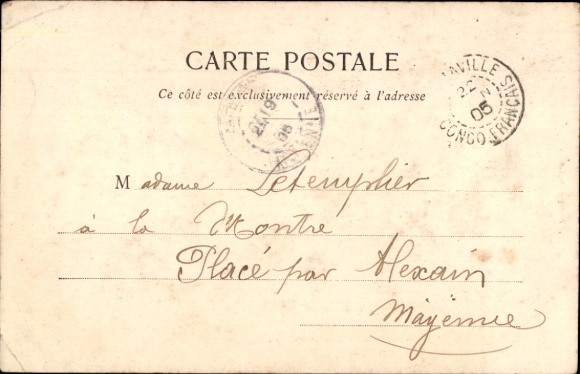 CARTE POSTALE
Ce côté est exclusivement réservé à l'adresse
AVILLE
22
05
CONGO FRANÇAIS
05
Madame Letemplier
à la Montre
Placé par Alexain
Mayenne